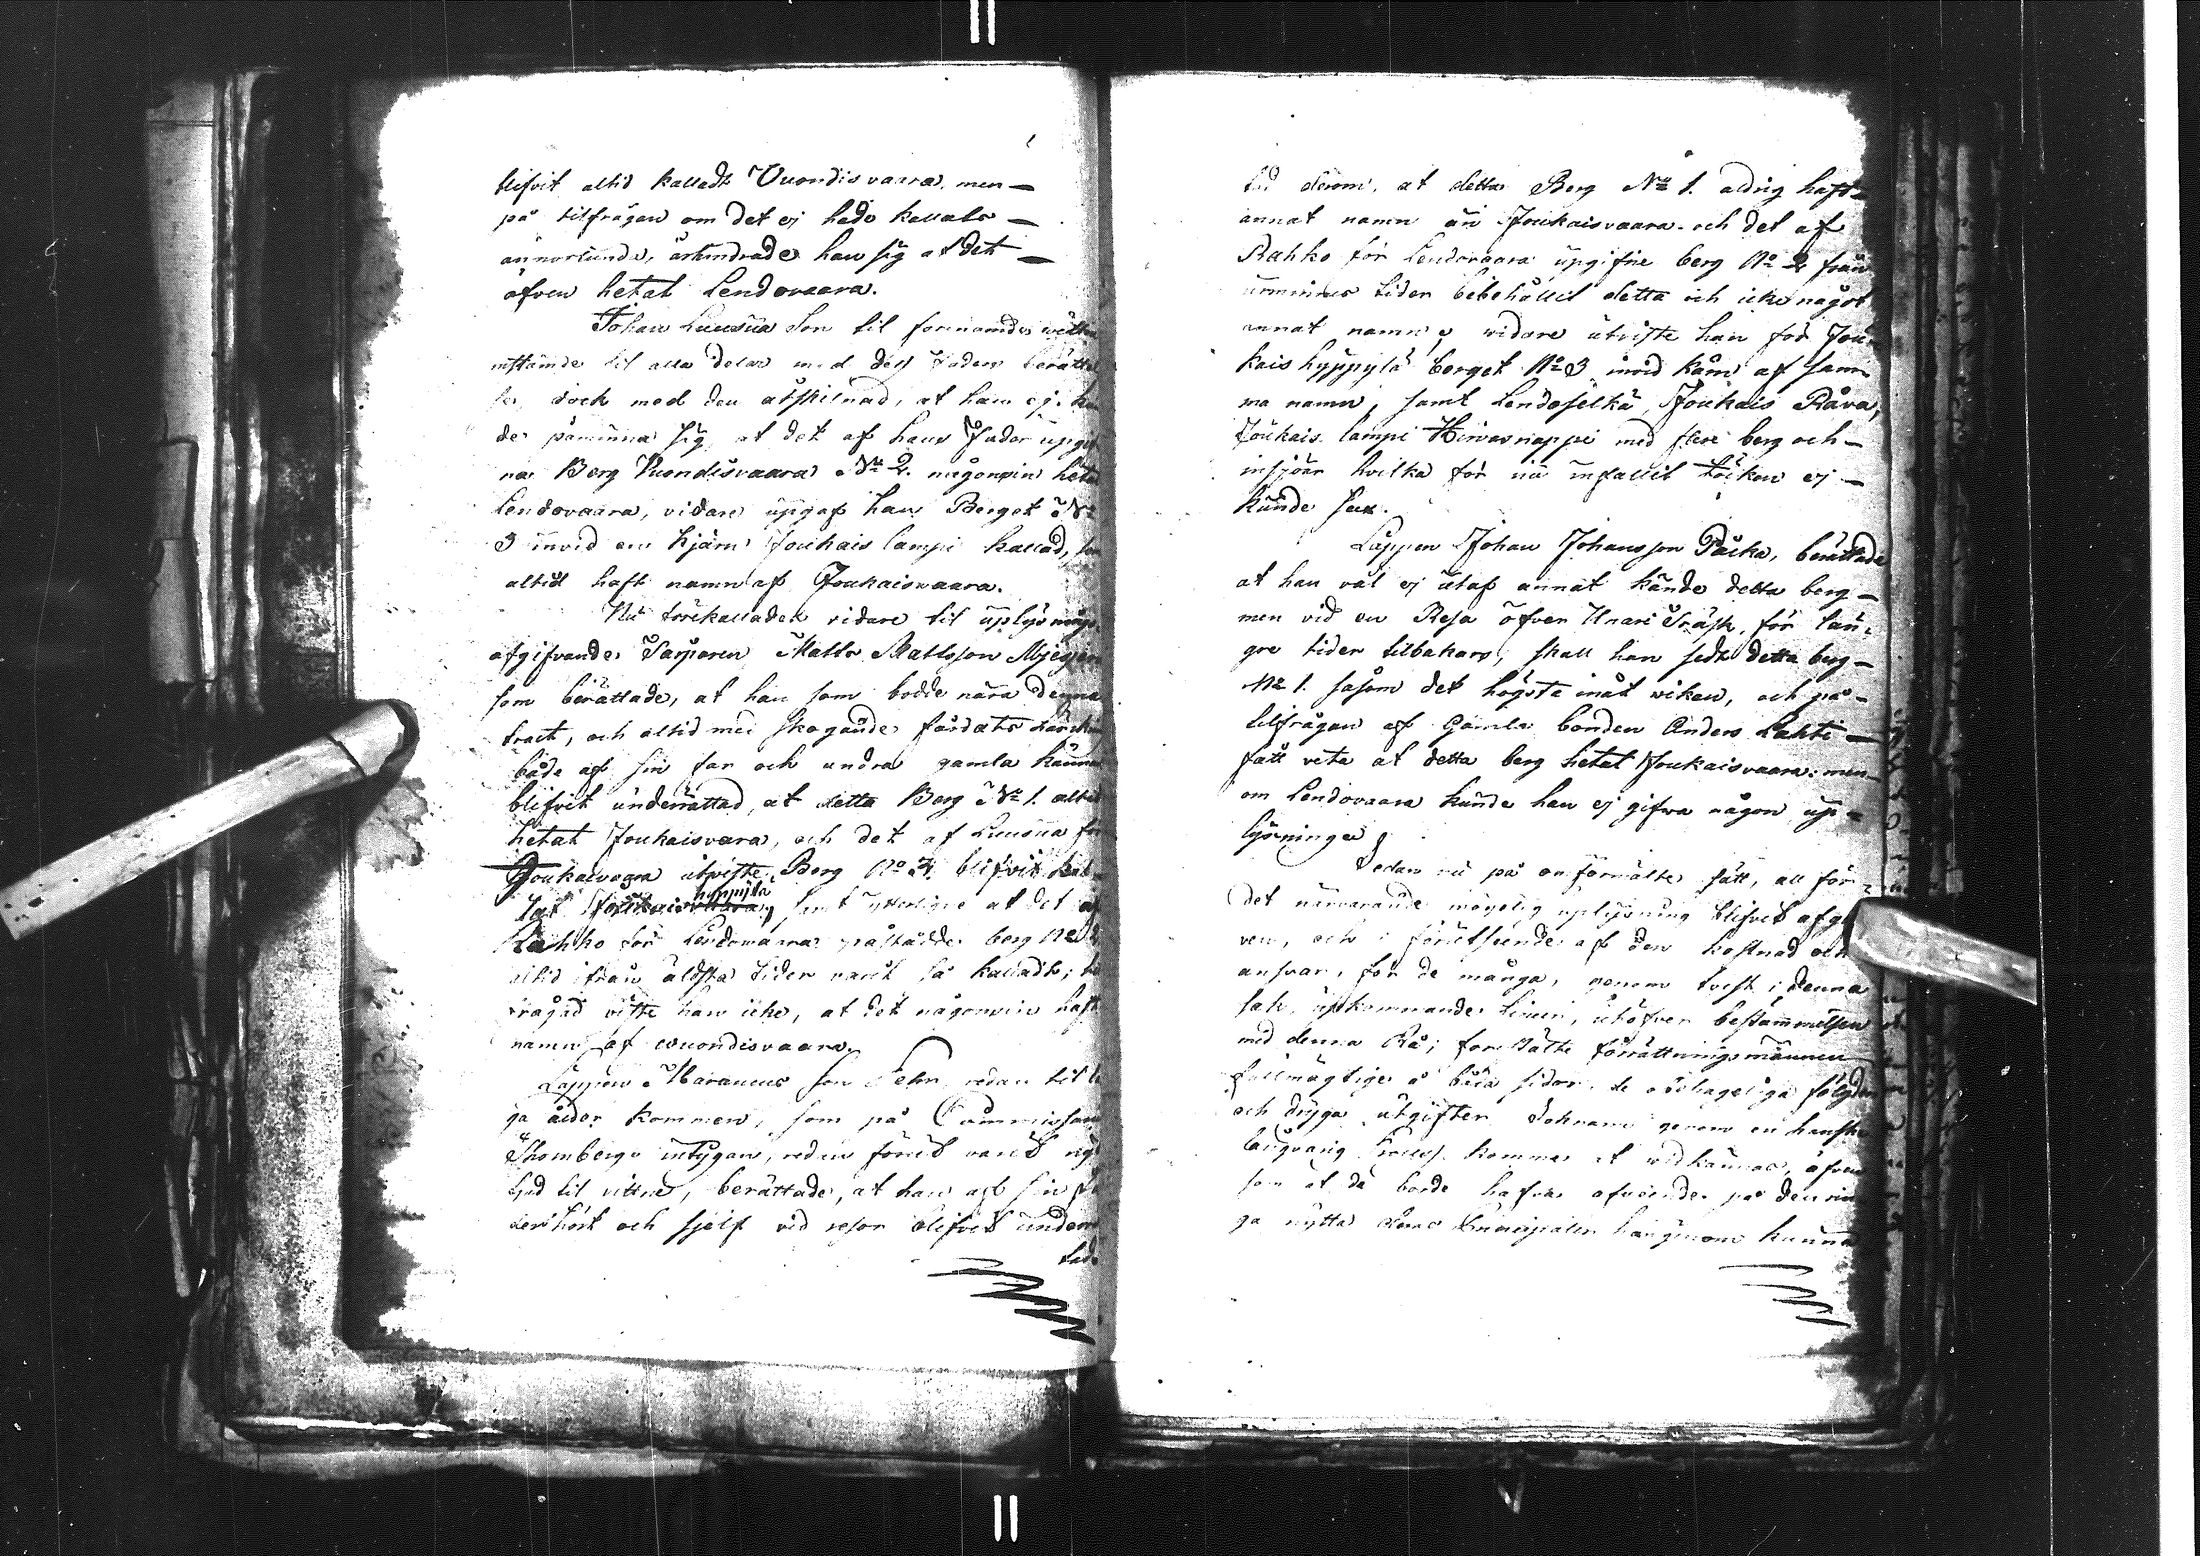 blifvit altid kalladt Vuondisvaara, men
på tilfrågan om det ej hade kallats
annorlunda, ärhindrade han sig at det
äfven hetat Lendovaara.
Johan Luusua Son til formämde
instämde til alla delar med dess Faders berätt
dock med den åtskilnad, at han ej
de påminna sig at det af hans Fader upgif
na Berg Vuondisvaara No 2. någonsin het
Lendovaara, vidare upgaf han Berget No
3 invid en Kjärn Joukais lampi kallad,
altid haft namn af Joukaisvaara.
Nu förekallades vidare til uplysnings
afgifvande Matts Mattsson
som berättade, at han som bodde nära denna
tract, och altid med skogande färdats
både af sin far och andra gamla känna
blifvit underrättad, at detta Berg No 1. altid
hetat Joukaisvara, och det af Luusua för
Joukaivaara utviste Berg No 3, blifvit kal
lat Joukais hyppylä samt ytterligare at det af
Rahko för Lendovaara påstådde berg No 2
altid ifrån äldsta tider varit så kalladt;
frågad viste han icke, at det någonsin haft
namn af wuondisvaara.
Lappen son Fehn redan til
ga ålder kommen, som på Commissarien
intygan, redan förut varit
til vittne, berättade, at han af sin
der hört och sjelf vid resor blifvit under
tad
tad derom, at detta Berg No 1. aldrig haft
annat namn än Joukaisvaara och det af
Rahko för Lendovaara upgifne berg No 2 från
urminnes tider bibehållit detta och icke något
annat namn, vidare utviste han för Jou
kais hyppylä berget No 3 invid kärn af sam
ma namn, samt Lendoselkä, Joukais Råva,
Joukais lampi Hirvasnappi med flere berg och
insjöar hvilka för nu infallit töcken ej
kunde ses.
Lappen Johan Johansson Påcka, berättade
at han väl ej utaf annat kände detta berg
men vid en Resa öfver Unari Träsk, för län
gre tider tilbakars, skall han sedt detta berg
No 1. såsom det högste inåt viken, och på
tilfrågan af gamla bonden Anders Lahti
fått veta at detta berg hetat Joukaisvaara; men
om Lendovaara kunde han ej gifva någon up
lysning.
Sedan nu på omförmälte sätt, all för
det närvarande möjelig uplysning blifvit afgif
ven, och i förutseende af den kostnad och
ansvar, för de många, genom tvist i denna
sak, upkommande Linier, utöfver bestämmelsen
med denna Rå; förestälte förrättningsmännen
fullmägtige å båda sidor, de obehageliga följder
och dryga utgifter Sokname genom en kanske
långvarig Process kommer at vidkännas, äfven
som at då borde hafva afseende på den rin
ga nytta deras Principaler härigenom kunna